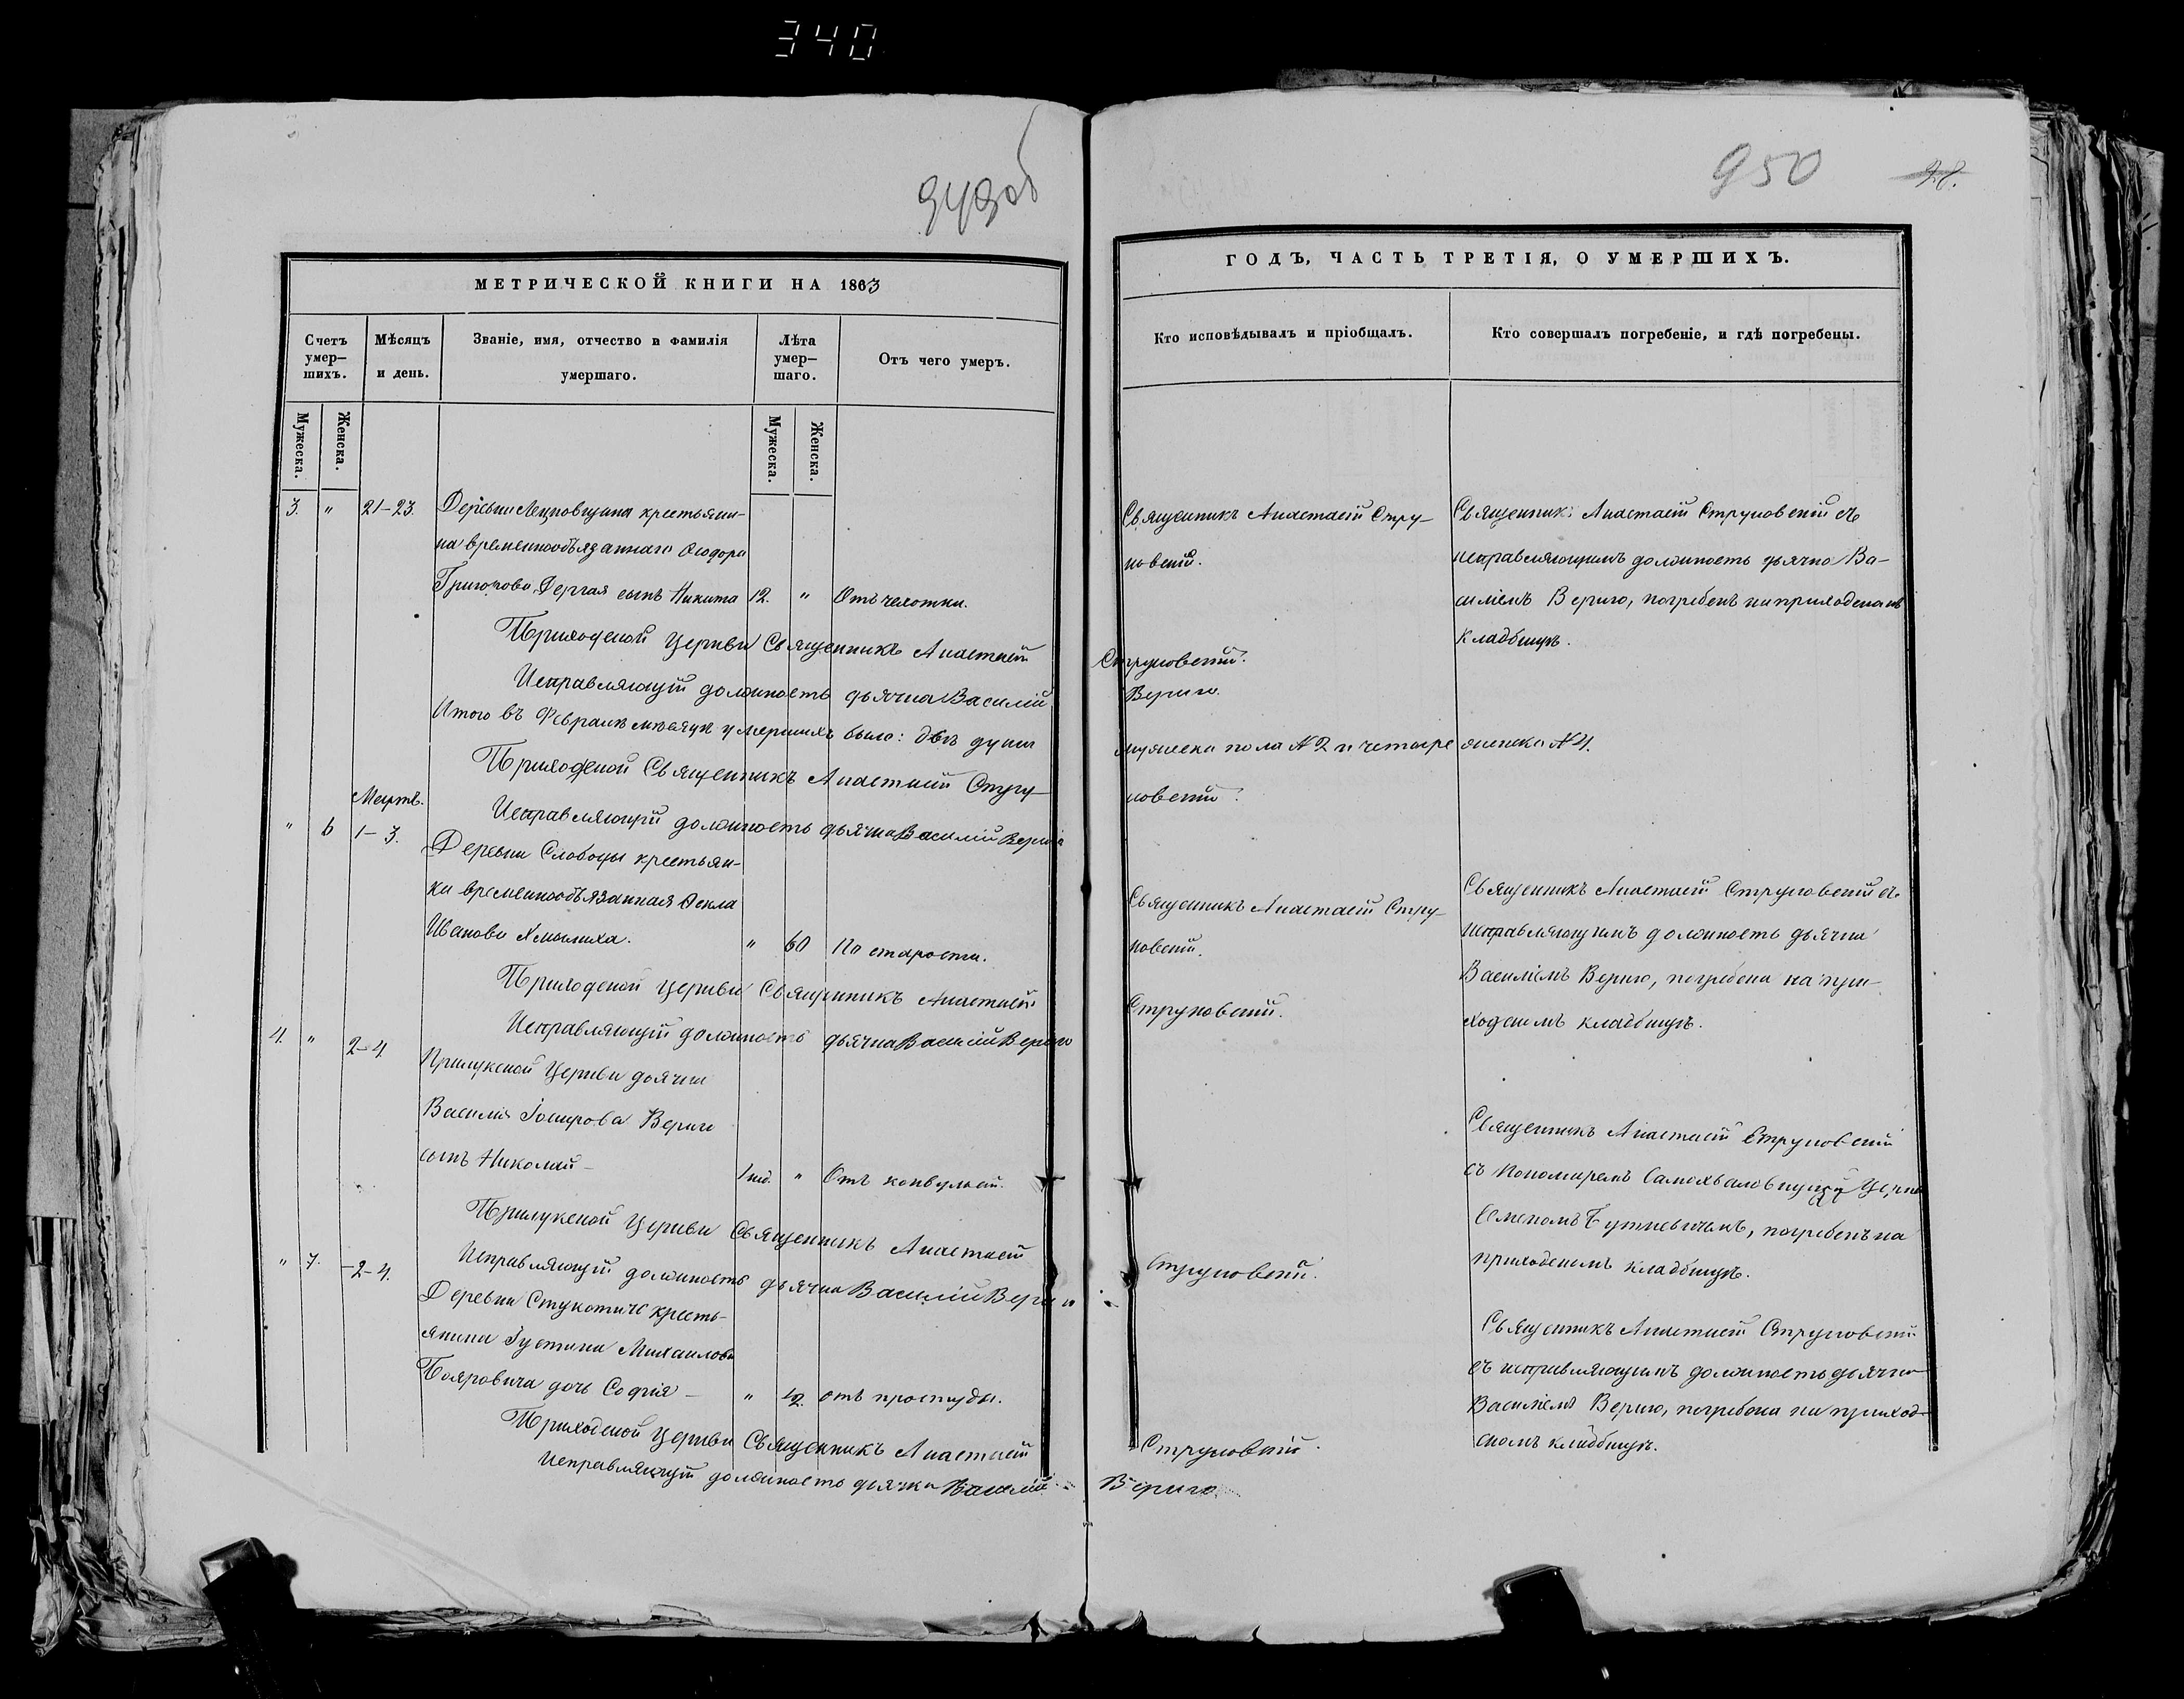 340
949об
950
28.
МЕТРИЧЕСКОЙ КНИГИ НА 1863
Счетъ умер-шихъ.
Мѣсяцъ и день.
Званіе, имя, отчество и фамилія умершаго.
Лѣта умер-шаго.
Отъ чего умеръ.
Мужеска.
Женска.
Мужеска.
Женска.
3. " 21-23. Деревни крестьяни-
на временнообязаннаго Ѳеодора
Григорова Дергая сынъ Никита 12. " Отъ чахотки.
Приходской Церкви Священникъ Анастасій
Исправляющій должность дьячка Василій
Итого въ Февралѣ мѣсяцѣ умершихъ было: двѣ души
Приходской Священникъ Анастасій Струк-
Мартъ.
Исправляющій должность дьячка Василій Верига
" 6 1-3. Деревни Слободы крестьян-
ка временнообязанная Ѳекла
Иванова Хмылиха. " 60 По старости.
Приходской Церкви Священникъ Анастасій
Исправляющій должность дьячка Василій Вериго
4. " 2-4 Прилукской Церкви дьячка
Василія Вериги
сынъ Николай - 1 нед. " Отъ конвульсій.
Прилукской Церкви Священникъ Анастасій
Исправляющій должность дьячка Василій Вериго
" 7. -2-4. Деревни Стукотичъ кресть-
янина Іустина Михаилова
Бояровича дочь Софія - " 12. отъ простуды.
Приходской Церкви Священникъ Анастасій
Исправляющій должность дьячка Василій
ГОДЪ, ЧАСТЬ ТРЕТІЯ, О УМЕРШИХЪ.
Кто исповѣдывалъ и пріобщалъ.
Кто совершалъ погребеніе, и гдѣ погребены.
Священникъ Анастасій Стру-
ковскій.
Священникъ Анастасій Струковскій съ
исправляющимъ должность дьячка Ва-
силіемъ Вериго, погребенъ на приходскомъ
кладбищѣ.
Струковскій.
Вериго.
мужеска пола № 2 и четыре женска № 4.
ковскій.
Священникъ Анастасій Стру-
ковскій.
Священникъ Анастасій Струковскій съ
исправляющимъ должность дьячка
Василіемъ Вериго, погребена на при-
ходскомъ кладбищѣ.
Струковскій.
Священникъ Анастасій Струковскій
съ Пономаремъ Самохваловицкой Церкви
Семеномъ погребенъ на
приходскомъ кладбищѣ.
Струковскій.
Священникъ Анастасій Струковскій
съ исправляющимъ должность дьячка
Василіемъ Вериго, погребена на приход-
скомъ кладбищѣ.
Струковскій.
Вериго